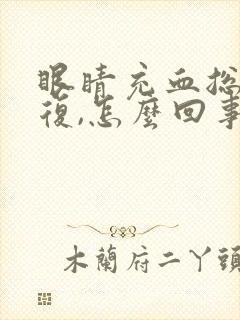 眼睛充血總
復,怎麼回事
木蘭府二丫頭